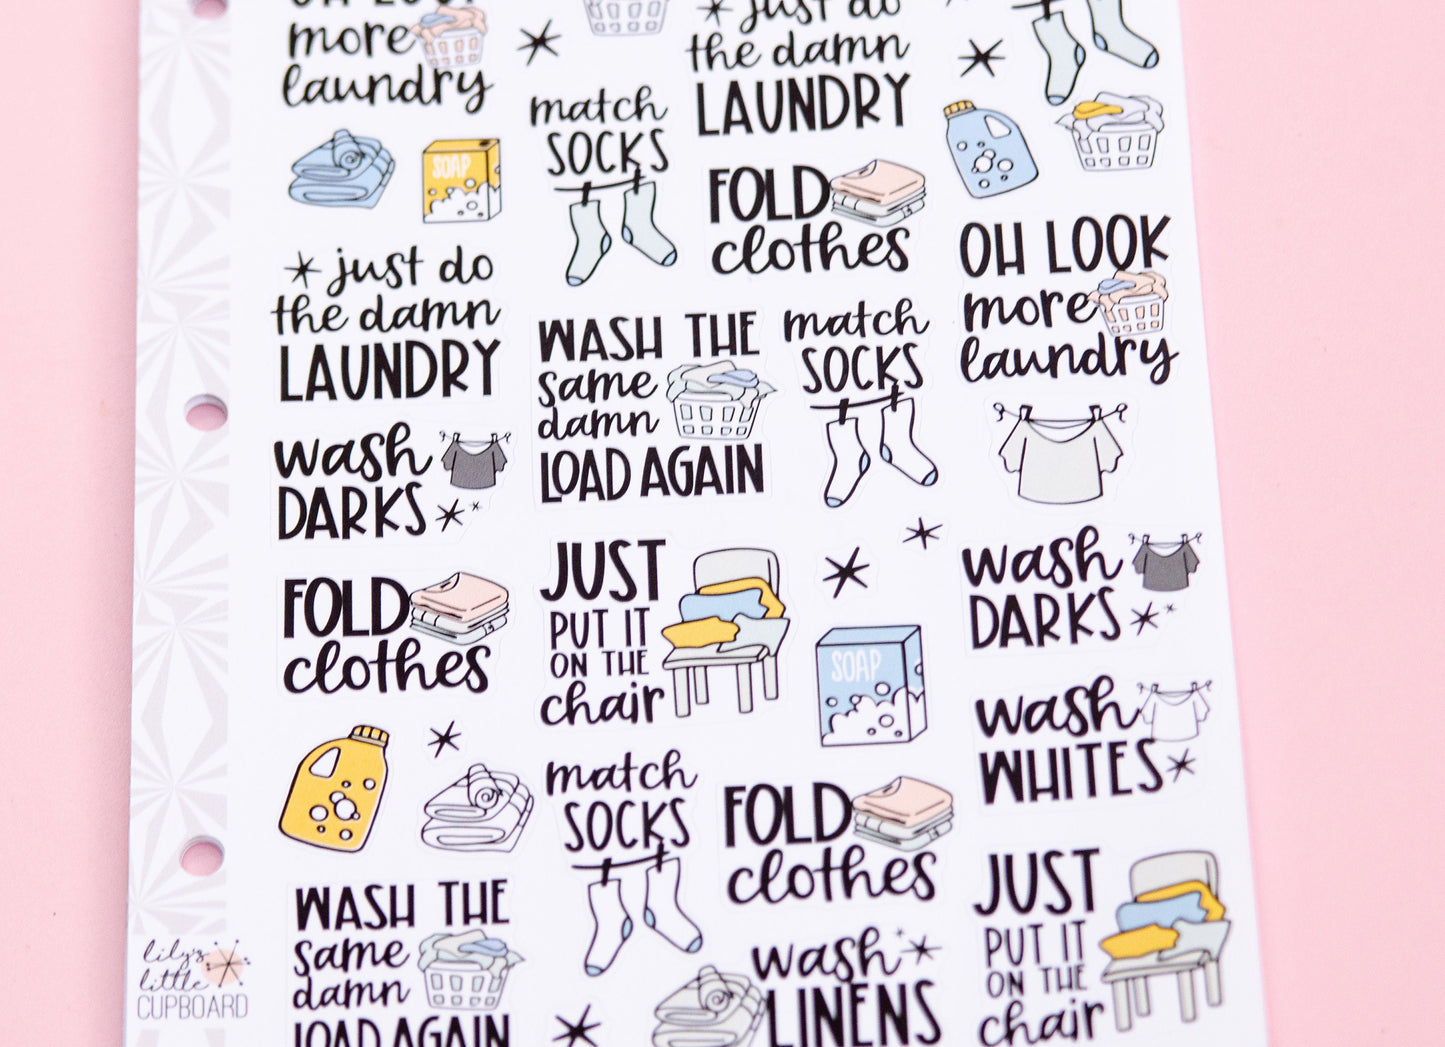 OH LOOK
more
laundry
just do
the damn
LAUNDRY
match
SOCKS
SOAP
FOLD
clothes
OH LOOK
more
laundry
just do
the damn
LAUNDRY
WASH THE
same
damn
LOAD AGAIN
match
SOCKS
wash
DARKS
JUST
PUT IT
ON THE
chair
wash
DARKS
FOLD
clothes
SOAP
wash
WHITES
match
SOCKS
FOLD
clothes
JUST
PUT IT
ON THE
chair
WASH THE
same
damn
LOAD AGAIN
wash
LINENS
lily's
little
CUPBOARD